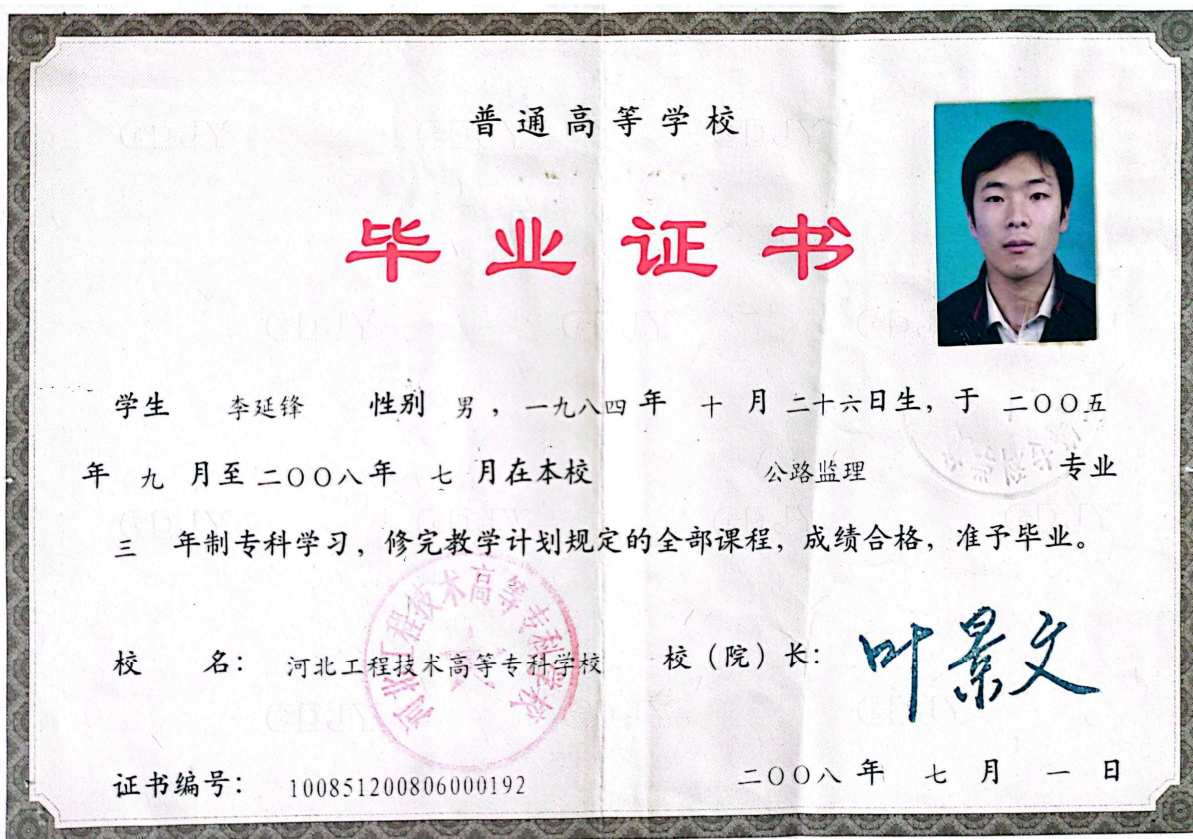 普通高等学校
毕业证书
学生 李延锋 性别 男，一九八四年 十 月 二十六日生，于 二〇〇五
年 九 月至二〇〇八年 七 月在本校 公路监理 专业
三 年制专科学习，修完教学计划规定的全部课程，成绩合格，准予毕业。
河北工程技术高等专科学校
校 名： 河北工程技术高等专科学校 校（院）长： 叶景文
证书编号： 100851200806000192 二〇〇八 年 七 月 一 日